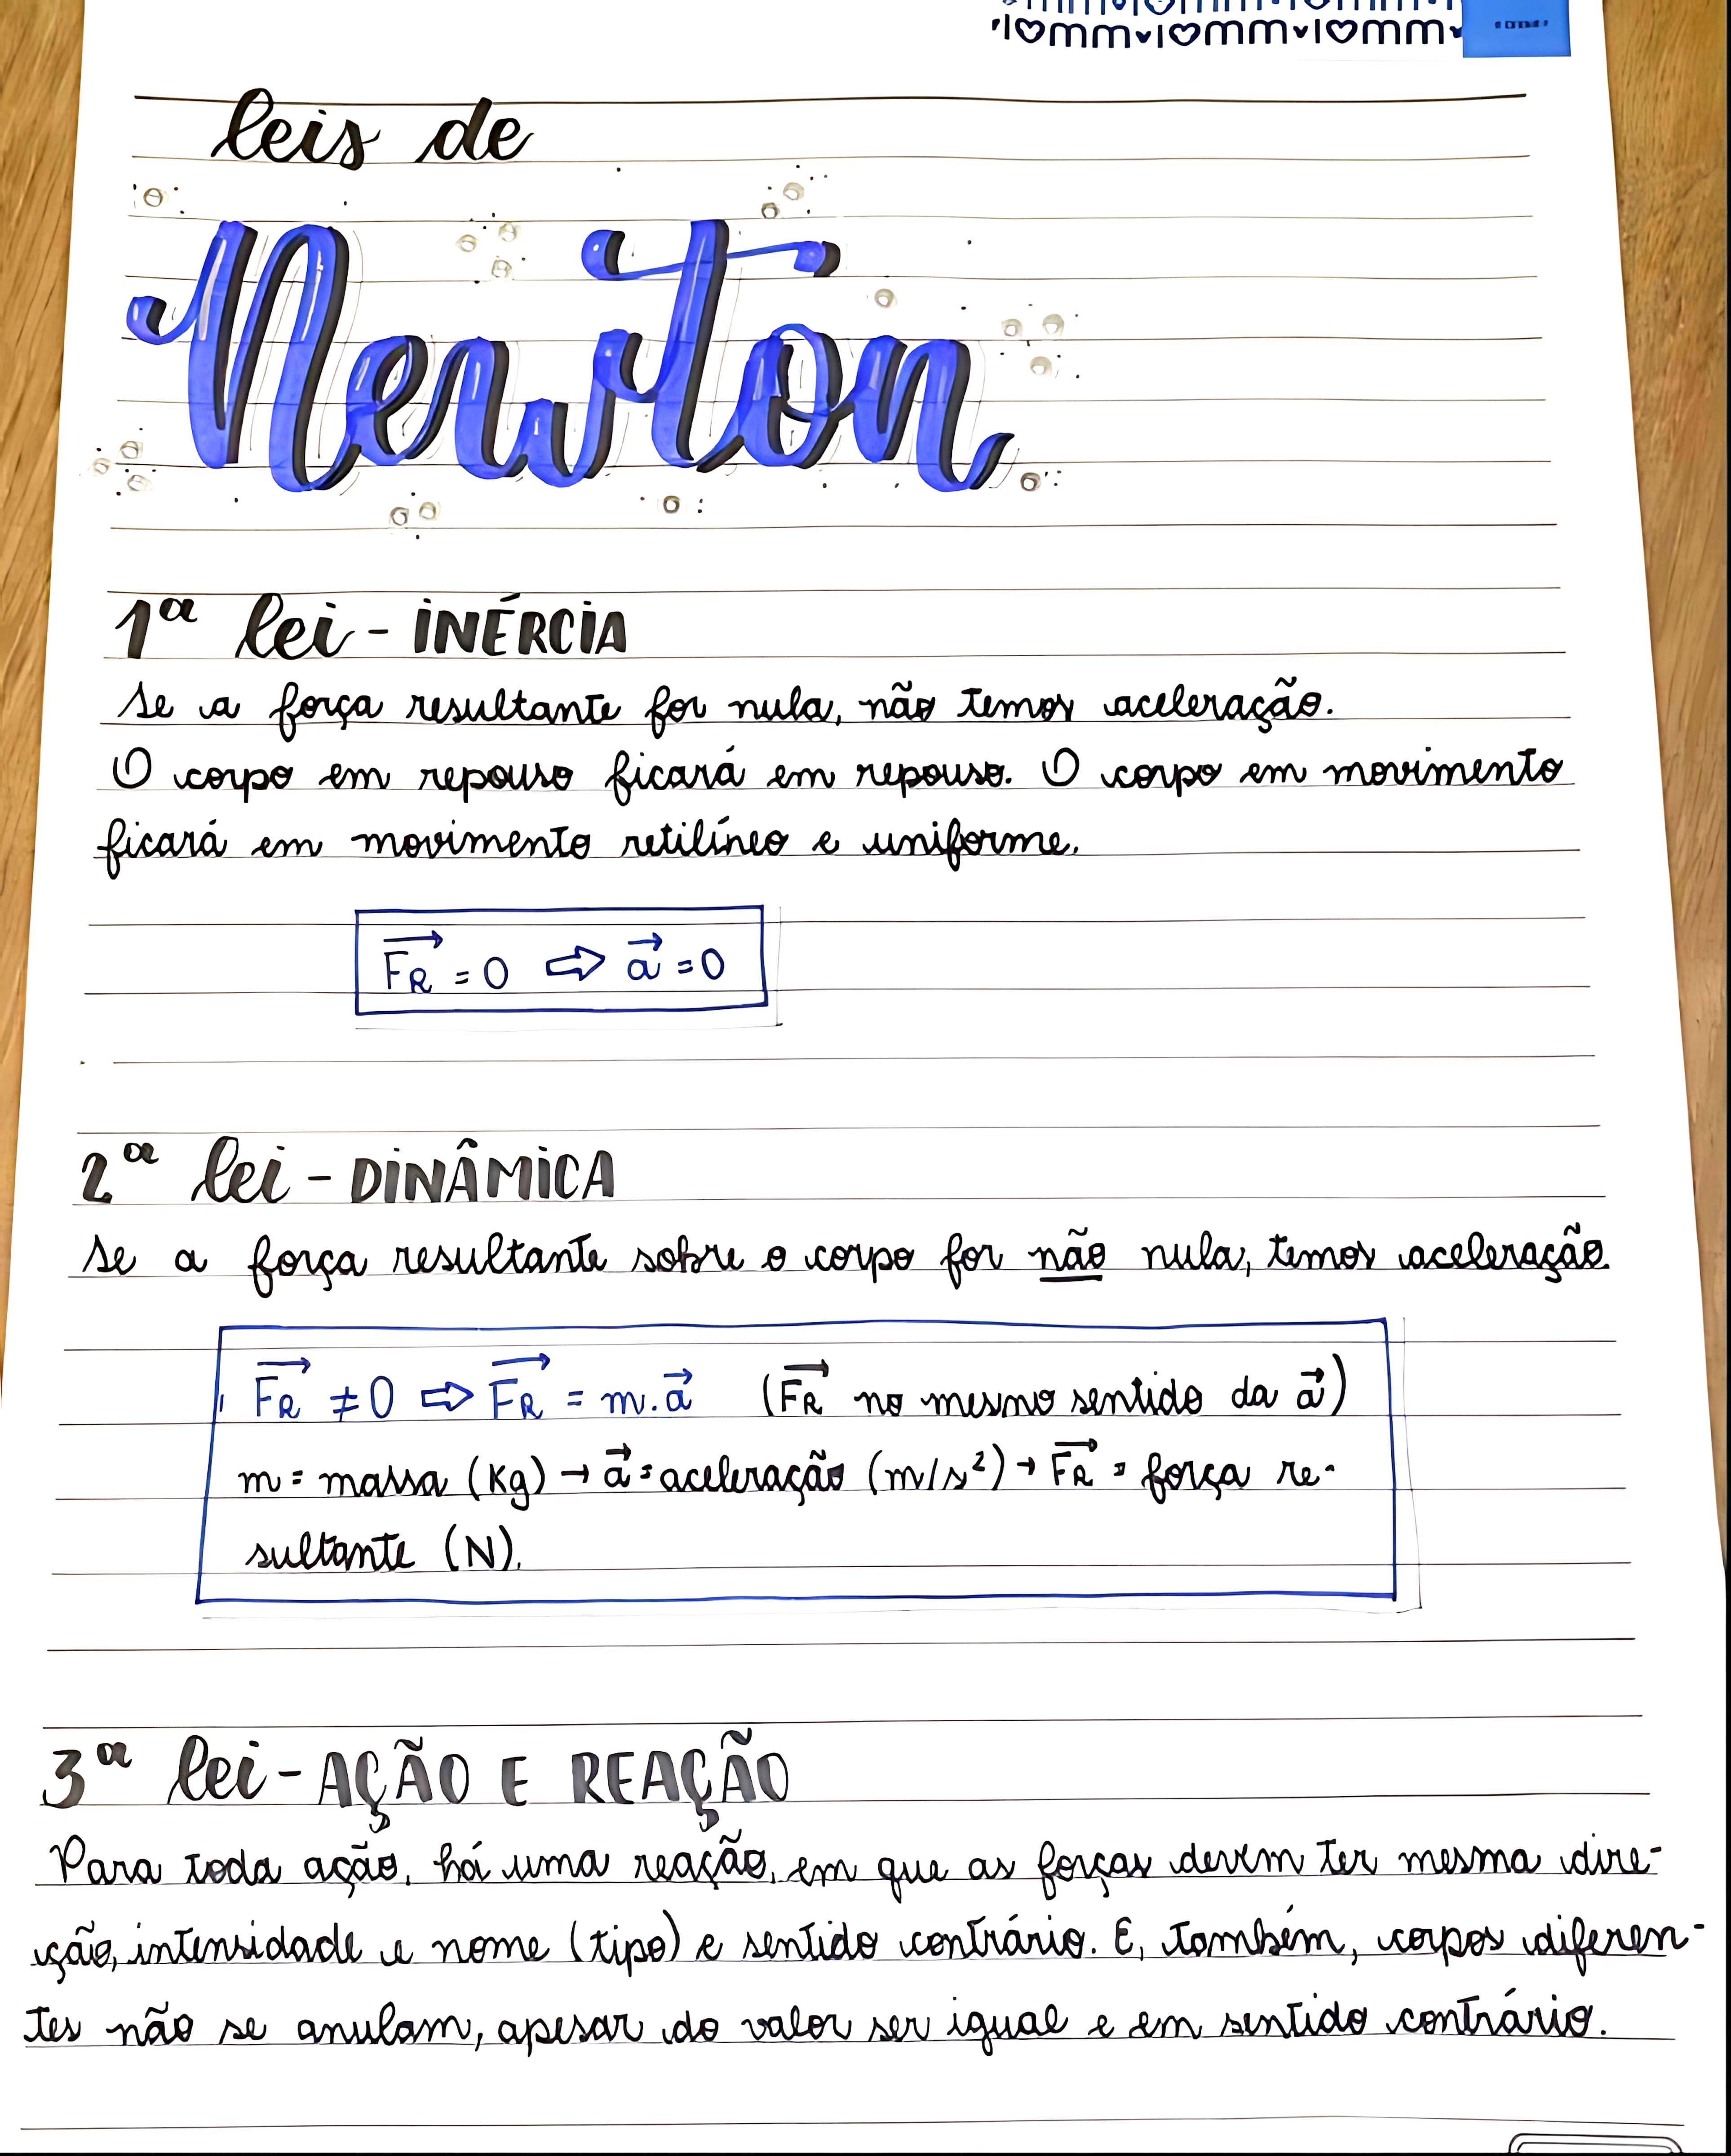 I♡mm♥I♡mm♥I♡mm♥
leis de
Newton
1ª lei - INÉRCIA
Se a força resultante for nula, não temos aceleração.
O corpo em repouso ficará em repouso. O corpo em movimento
ficará em movimento retilíneo e uniforme.
F⃗R = 0 ⇨ a⃗ = 0
2ª lei - DINÂMICA
Se a força resultante sobre o corpo for não nula, temos aceleração.
F⃗R ≠ 0 ⇨ F⃗R = m.a⃗ (F⃗R no mesmo sentido da a⃗)
m = massa (Kg) → a⃗ = aceleração (m/s²) → F⃗R = força re-
sultante (N).
3ª lei - AÇÃO E REAÇÃO
Para toda ação, há uma reação, em que as forças devem ter mesma dire-
ção, intensidade e nome (tipo) e sentido contrário. E, também, corpos diferen-
tes não se anulam, apesar do valor ser igual e em sentido contrário.